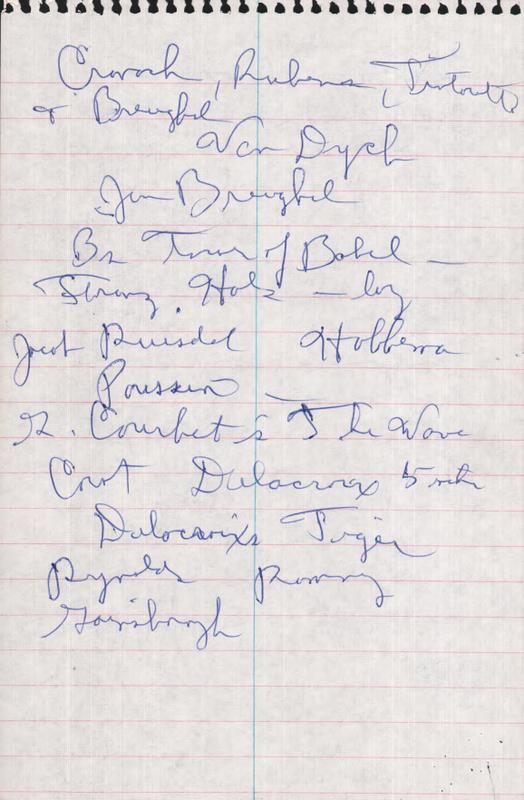 Cranach, Rubens, Tintoretto
& Breughel
Van Dych
Jan Breughel
Tower of Babel —
Strong. — by
Ruisdel Hobbema
Poussin
G. Courbet's The Wave
Corot Delacroix
Delacroix's Tiger
Rynolds Romney
Gainsborough